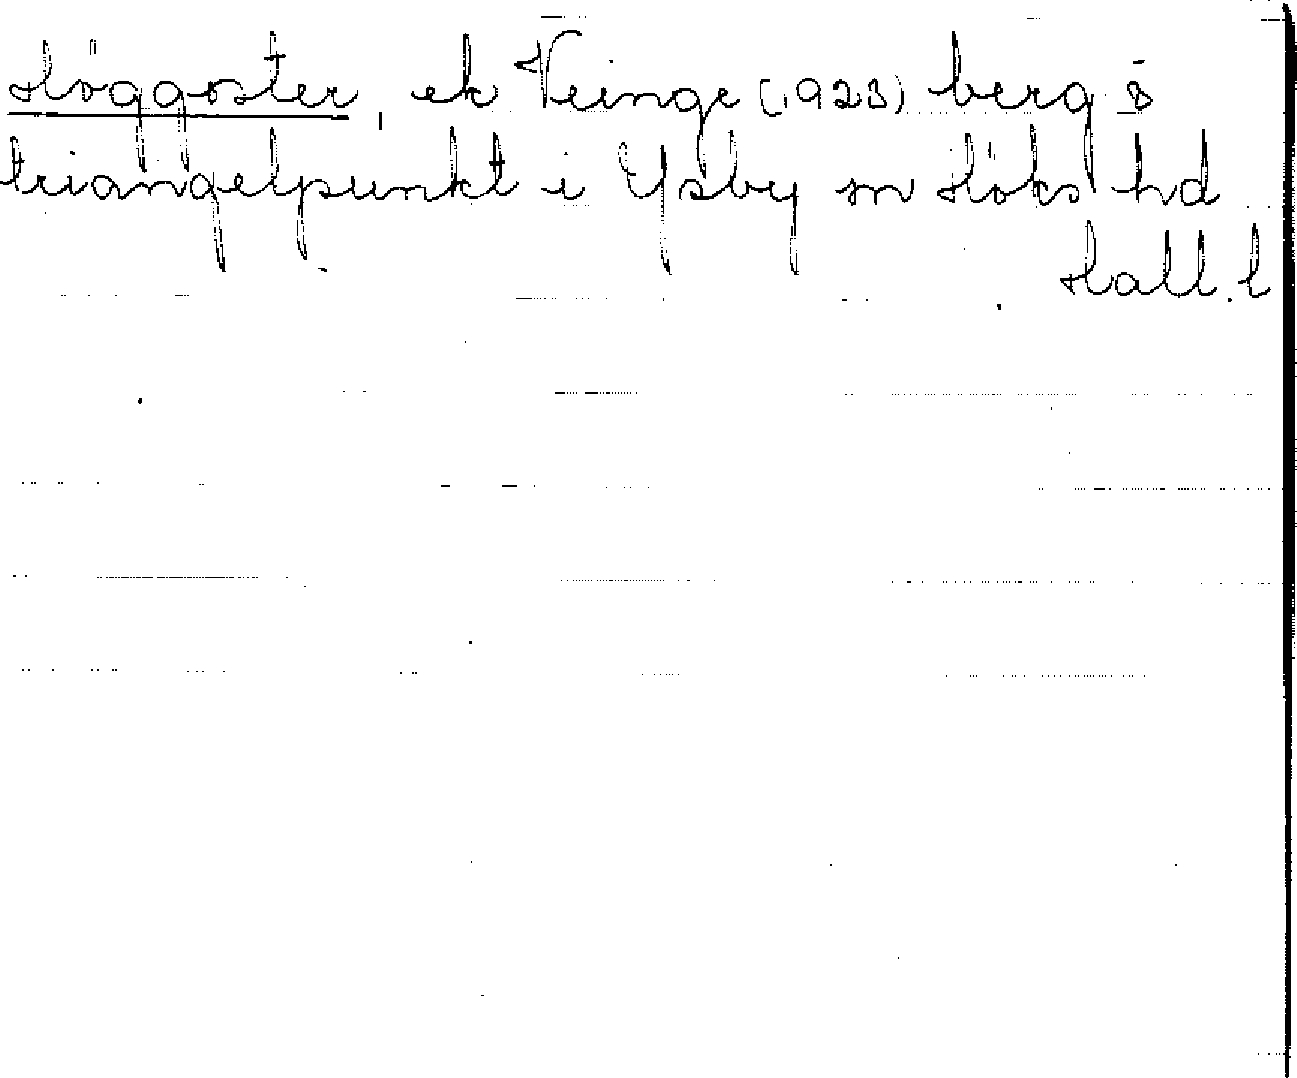 Höggoster, ek Veinge (1923) berg &
triangelpunkt i Ysby sn Höks hd
Hall. l